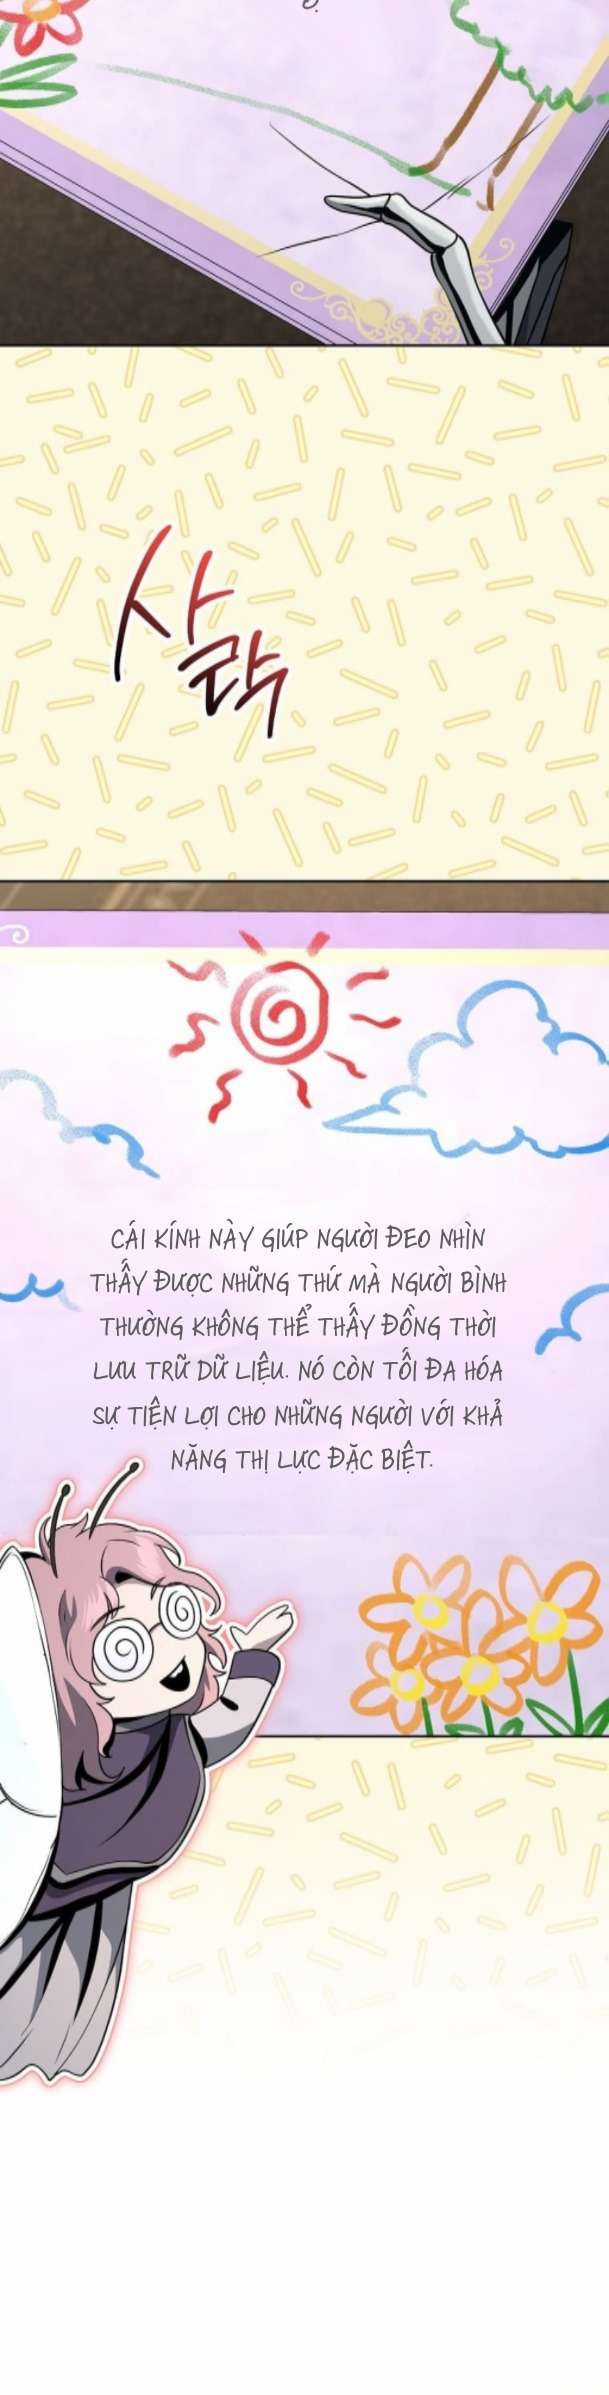 사
락
CÁI KÍNH NÀY GIÚP NGƯỜI ĐEO NHÌN
THẤY ĐƯỢC NHỮNG THỨ MÀ NGƯỜI BÌNH
THƯỜNG KHÔNG THỂ THẤY ĐỒNG THỜI
LƯU TRỮ DỮ LIỆU. NÓ CÒN TỐI ĐA HÓA
SỰ TIỆN LỢI CHO NHỮNG NGƯỜI VỚI KHẢ
NĂNG THỊ LỰC ĐẶC BIỆT.